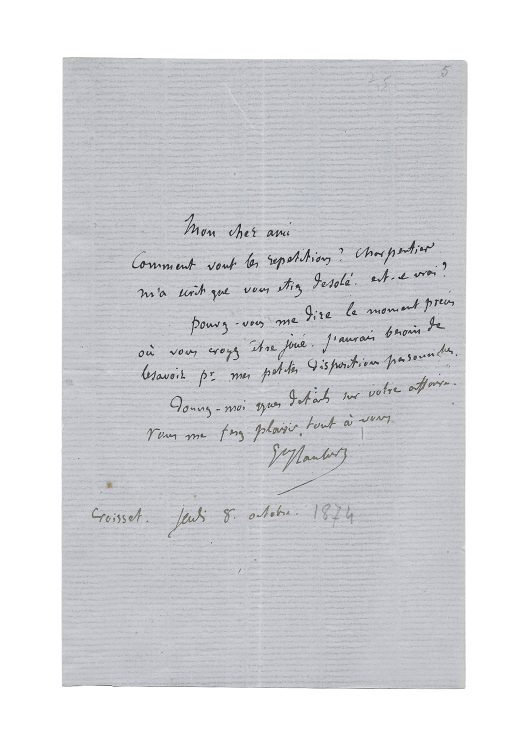 5
Mon cher ami
Comment vont les repetitions? Charpentier
m'a ecrit que vous etiez desolé. est-ce vrai?
pouvez-vous me dire le moment précis
où vous croyez être joué. J'aurais besoin de
le savoir pr mes petites dispositions personnelles.
Donnez-moi qques details sur votre affaire.
vous me ferez plaisir. tout à vous
Gve Flaubert
Croisset. Jeudi 8. octobre. 1874